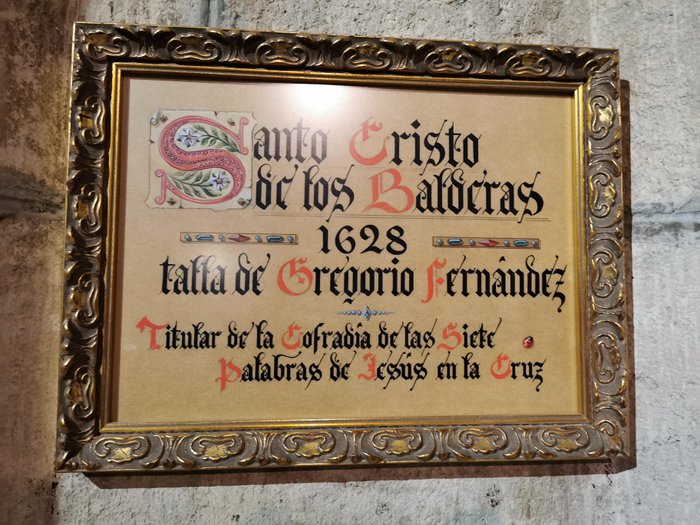 Santo Cristo
de los Balderas
1628
talla de Gregorio Fernández
Titular de la Cofradía de las Siete
Palabras de Jesús en la Cruz